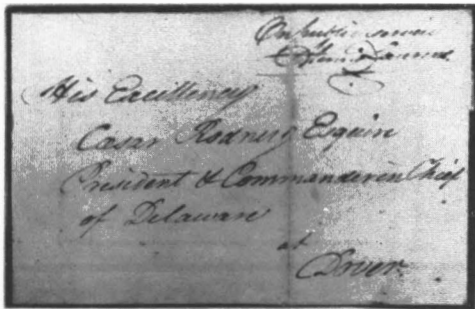 On public service
Henry Laurens
His Excellency
Cæsar Rodney Esquire
President & Commander in Chief
of Delaware
at
Dover.